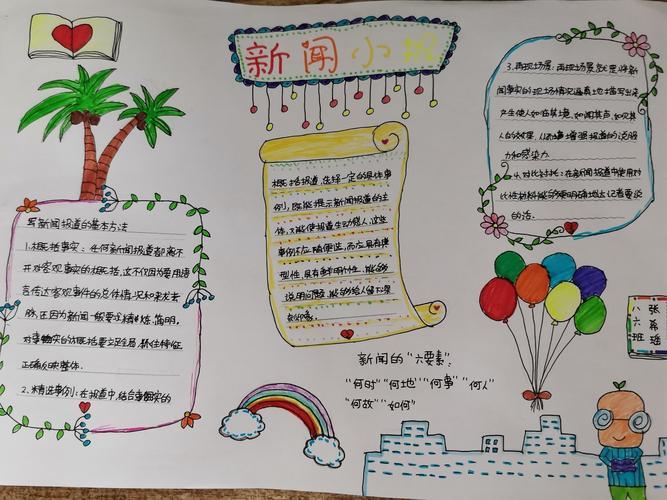 新闻小报
写新闻报道的基本方法
1.概括事实：任何新闻报道都离不
开对客观事实的概括，这不仅因为要用语
言传达客观事件的总体情况和来龙去
脉，还因为新闻一般要求精炼、简明，
对事物实的概括要立足全局，抓住特征，
正确反映整体。
2.精选事例：在报道中，结合事实的
概括报道，选择一定的具体事
例，既能揭示新闻报道的主
体，又能使报道生动感人，这些
事例不应随便选，而应具有典
型性，具有鲜明个性，能够
说明问题，能够给人留下深
刻印象。
3.再现场景：再现场景就是将新
闻事实的现场情况逼真地描写出来
产生使人如临其境，如闻其声，如见其
人的效果，从而增强报道的说服
力和感染力。
4.对比衬托：在新闻报道中使用对
比性材料能够更明确地让记者要谈
的话。
新闻的“六要素”：
“何时”“何地”“何事”“何人”
“何故”“如何”
八六班
张希瑶